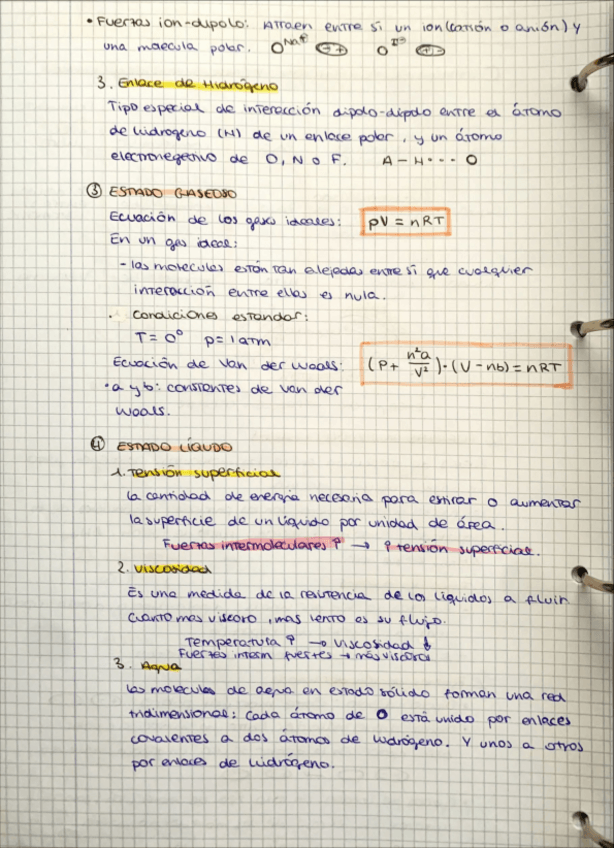 • Fuerzas ion-dipolo: Atraen entre sí un ion (catión o anión) y
una molécula polar. Na⁺ I⁻
3. Enlace de Hidrógeno
Tipo especial de interacción dipolo-dipolo entre el átomo
de hidrogeno (H) de un enlace polar, y un átomo
electronegativo de O, N o F. A – H ···· O
③ ESTADO GASEOSO
Ecuación de los gases ideales: pV = nRT
En un gas ideal:
- las moléculas están tan alejadas entre sí que cualquier
interacción entre ellas es nula.
· condiciones estandar:
T = 0° p = 1 atm
Ecuación de Van der Waals: (P + n²a/V²) · (V - nb) = nRT
· a y b: constantes de van der
Waals.
④ ESTADO LÍQUIDO
1. Tensión superficial
la cantidad de energía necesaria para estirar o aumentar
la superficie de un líquido por unidad de área.
Fuerzas intermoleculares ↑ → ↑ tensión superficial.
2. Viscosidad
Es una medida de la resistencia de los líquidos a fluir
cuanto mas viscoso, mas lento es su flujo.
Temperatura ↑ → viscosidad ↓
Fuerzas interm fuertes → más viscoso
3. Agua
las moléculas de agua en estado sólido forman una red
tridimensional: cada átomo de O está unido por enlaces
covalentes a dos átomos de hidrógeno. Y unos a otros
por enlaces de hidrógeno.